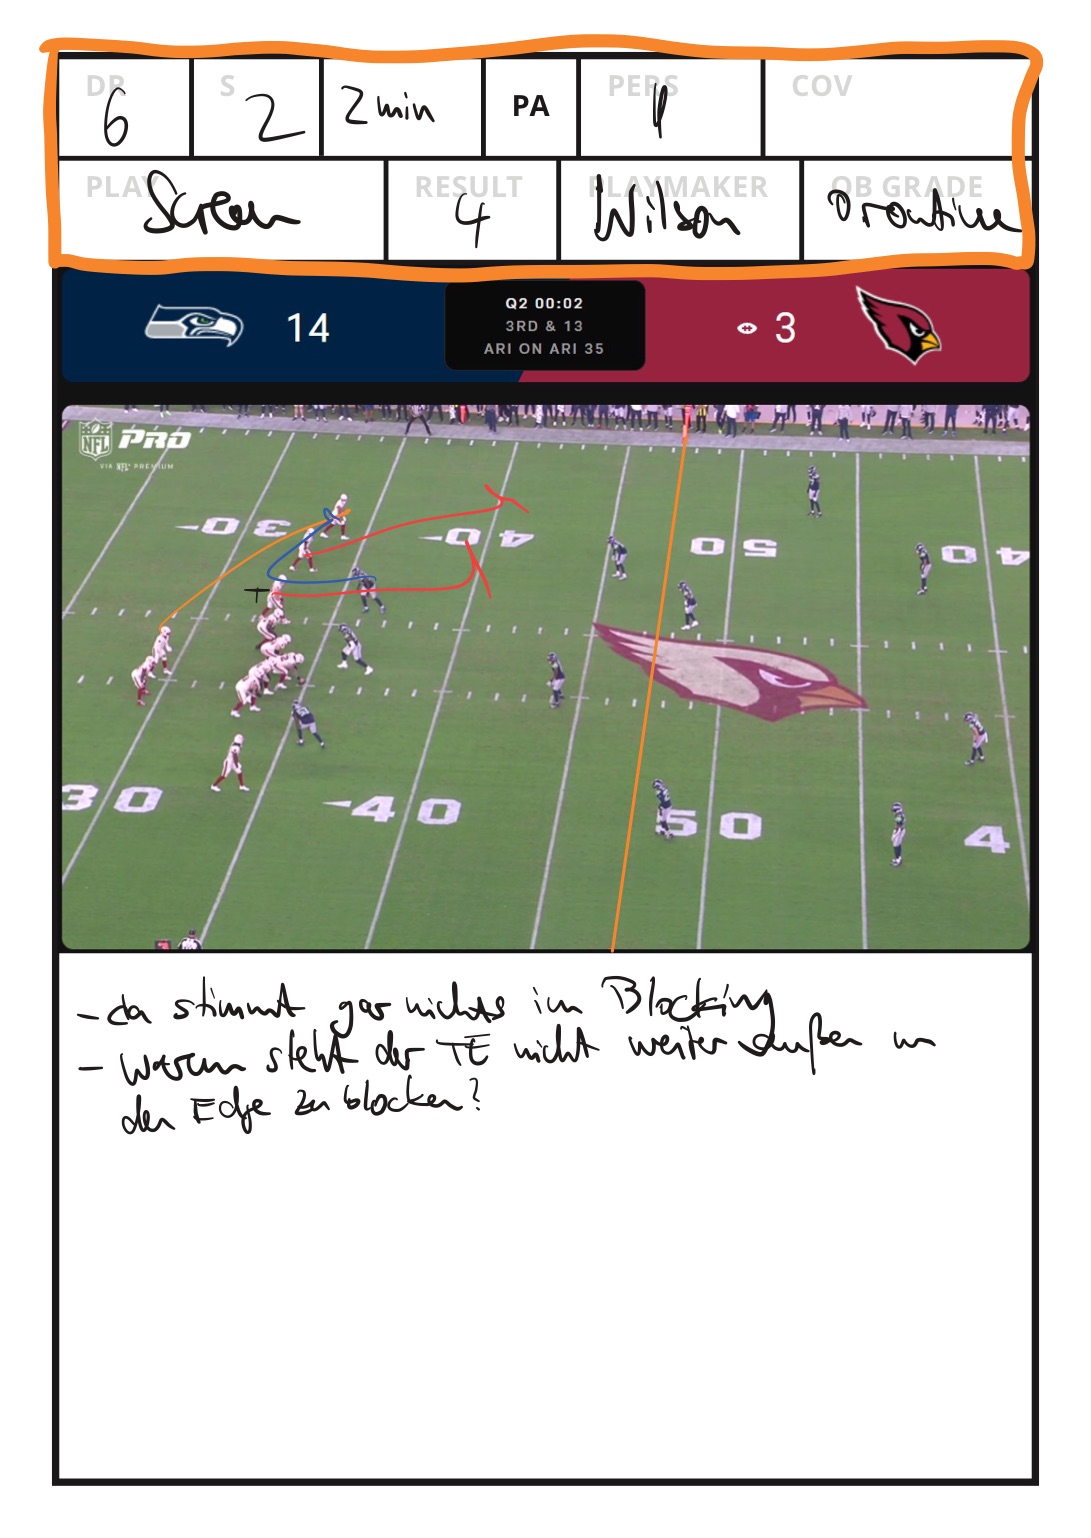 DR 6 S 2 2 min PA PERS 11 COV
PLAY Screen RESULT 4 PLAYMAKER Wilson QB GRADE Droutine
14 Q2 00:02 3
3RD & 13
ARI ON ARI 35
NFL PRO
VIA NFL+ PREMIUM
30 40 50 40
T
30 40 50 4
- da stimmt gar nichts im Blocking
- warum steht der TE nicht weiter außen um
den Edge zu blocken?